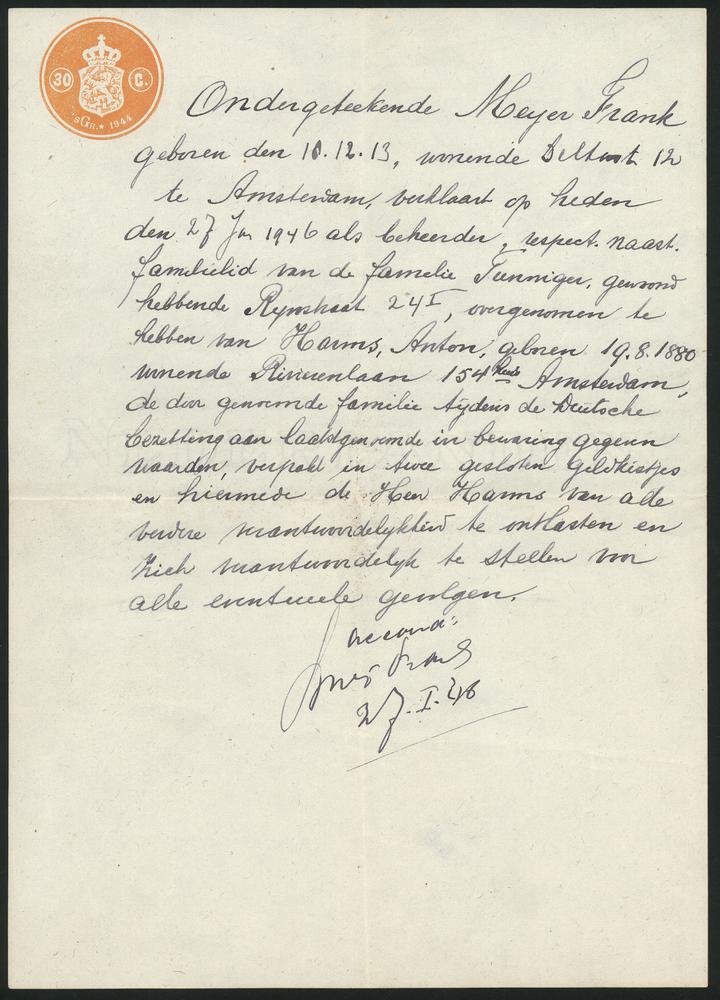 30 C.
'sGR.* 1944
Ondergeteekende Meyer Frank
geboren den 10.12.13, wonende Deltast 12
te Amsterdam, verklaart op heden
den 27 Jan 1946 als beheerder, respect. naast.
familielid van de familie Tunniger, gewoond
hebbende Rynstraat 24 I, overgenomen te
hebben van Harms, Anton, geboren 19.8.1880
wonende Rivierenlaan 154 huis Amsterdam,
de door genoemde familie tydens de Duitsche
bezetting aan laatstgenoemde in bewaring gegeven
waarden, verpakt in twee gesloten geldkistjes
en hiermede de Heer Harms van alle
verdere verantwoordelykheid te ontlasten en
zich verantwoordelyk te stellen voor
alle eventueele gevolgen.
accoord:
Frank
27.I.46